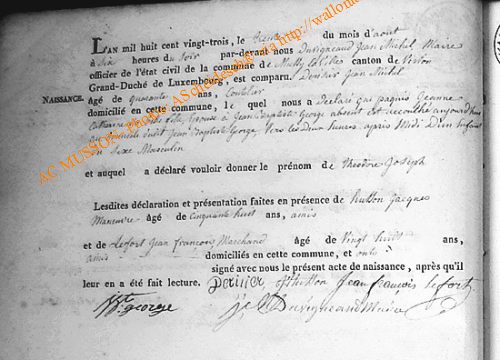 L'AN mil huit cent vingt-trois, le treize du mois d'aout
à six heures du soir par-devant nous Duvigneaud Jean Michel Maire
officier de l'état civil de la commune de canton de Virton
Grand-Duché de Luxembourg, est comparu Jean Michel
NAISSANCE. âgé de quarante ans,
domicilié en cette commune, le quel nous a déclaré qui Jeanne
Catharine Epouse à Jean Baptiste George absent est accouchée aujourdhui
au domicile dudit Jean Baptiste George vers les deux heures après Midi D'un Enfant
du Sexe Masculin
et auquel a déclaré vouloir donner le prénom de Théodore Joseph
Lesdites déclaration et présentation faites en présence de hutton Jacques
Manœuvre âgé de Cinquante huit ans, amis
et de Lefort Jean françois Marchand âgé de Vingt huit ans,
amis domiciliés en cette commune, et ont
signé avec nous le présent acte de naissance, après qu'il
leur en a été fait lecture. hutton Jean françois lefort
george Duvigneaud Maire
AC MUSSON Photo